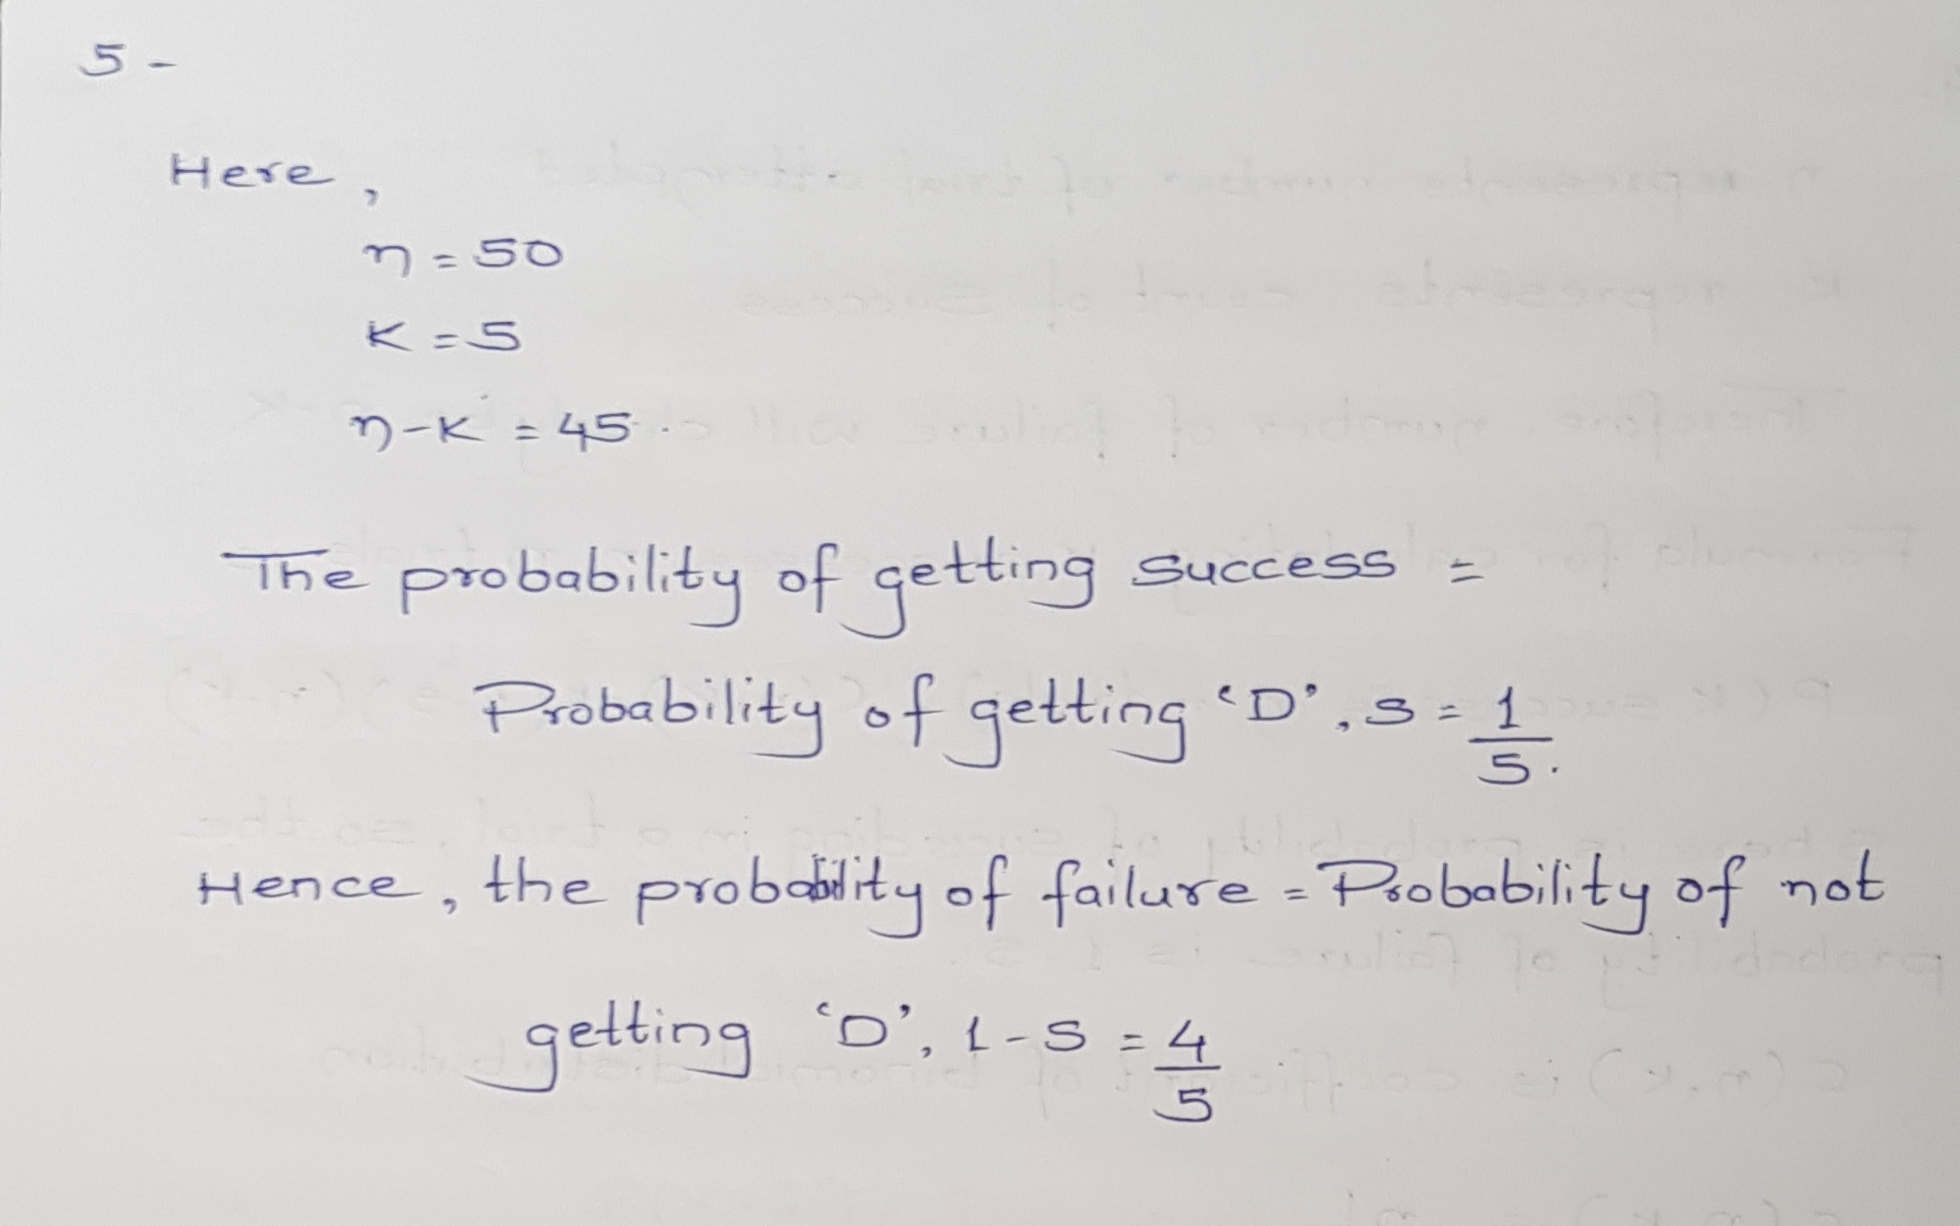 5 -
Here ,
n = 50
K = 5
n - K = 45 .
The probability of getting success =
Probability of getting 'D', s = 1/5.
Hence, the probability of failure = Probability of not
getting 'D', 1 - s = 4/5